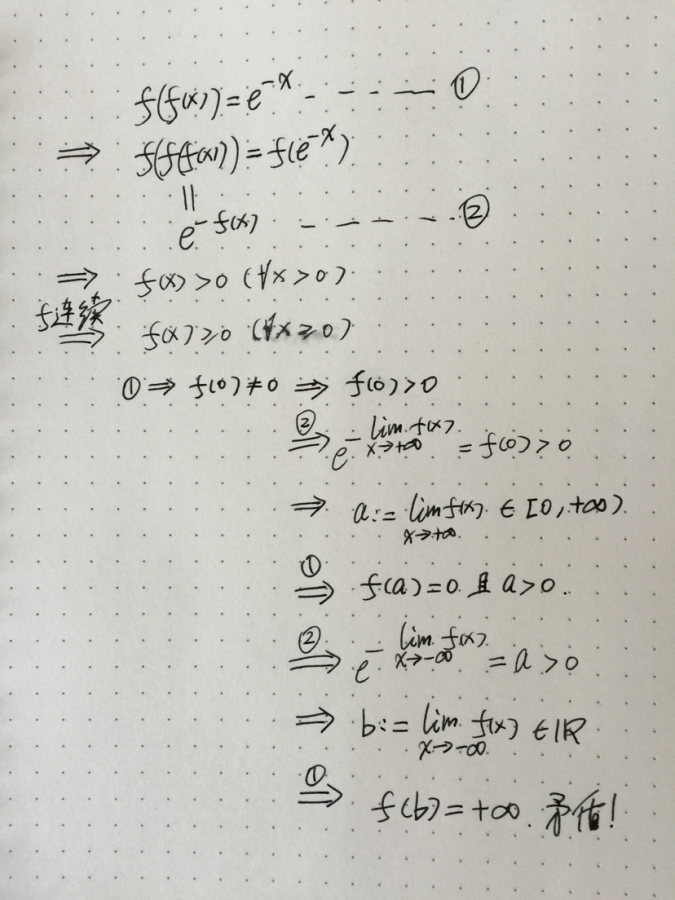 f(f(x)) = e^{-x} - - - — ①
⇒ f(f(f(x))) = f(e^{-x})
||
e^{-f(x)} - — — - - ②
⇒ f(x) > 0 (∀x > 0)
f连续 ⇒ f(x) ≥ 0 (∀x ≥ 0)
① ⇒ f(0) ≠ 0 ⇒ f(0) > 0
②⇒ e^{-lim_{x→+∞} f(x)} = f(0) > 0
⇒ a := lim_{x→+∞} f(x) ∈ [0, +∞)
①⇒ f(a) = 0 且 a > 0.
②⇒ e^{-lim_{x→-∞} f(x)} = a > 0
⇒ b := lim_{x→-∞} f(x) ∈ ℝ
①⇒ f(b) = +∞. 矛盾!